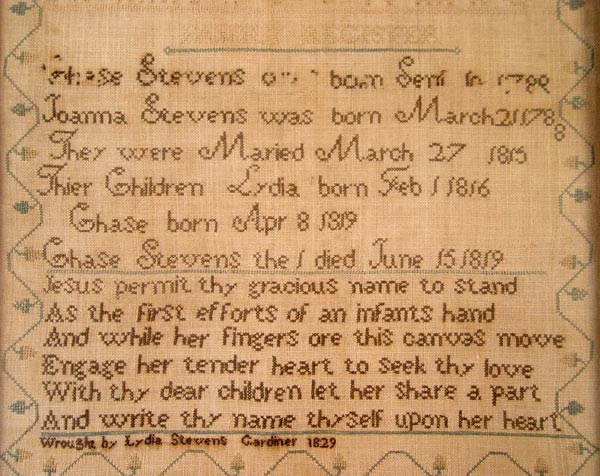 FAMILY REGISTER
Chase Stevens born 1788
Joanna Stevens was born March 21 1788
They were Maried March 27 1815
Thier Children Lydia born Feb 1 1816
Chase born Apr 8 1819
Chase Stevens the 1 died June 15 1819
Jesus permit thy gracious name to stand
As the first efforts of an infants hand
And while her fingers ore this canvas move
Engage her tender heart to seek thy love
With thy dear children let her share a part
And write thy name thyself upon her heart
Wrought by Lydia Stevens Gardiner 1829